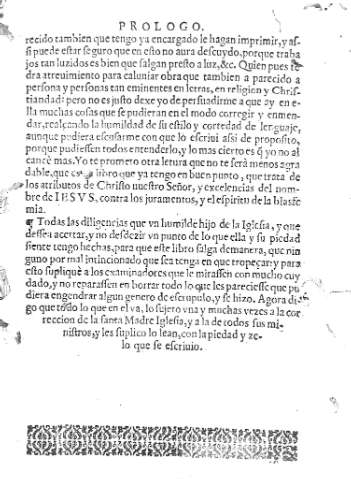 PROLOGO.
recido tambien que tengo ya encargado le hagan imprimir, y as-
si puede estar seguro que en esto no aura descuydo, porque traba
jos tan luzidos es bien que salgan presto a luz, &c. Quien pues tẽ
dra atreuimiento para caluniar obra que tambien a parecido a
persona y personas tan eminentes en letras, en religien y Chris-
tiandad: pero no es justo dexe yo de persuadirme a que ay en e-
lla muchas cosas que se pudieran en el modo corregir y enmen-
dar, realçando la humildad de su estilo y cortedad de lenguaje,
aunque pudiera escusarme con que lo escriui assi de proposito,
porque pudiessen todos entenderlo, y lo mas cierto es q̃ yo no al
cancè mas. Yo te prometo otra letura que no te serà menos agra
dable, que es libro que ya tengo en buen punto, que trata de
los atributos de Christo nuestro Señor, y excelencias del nom-
bre de IESVS, contra los juramentos, y el espiritu de la blasfe
mia.
¶ Todas las diligencias que vn humilde hijo de la Iglesia, y que
dessea acertar, y no desdezir vn punto de lo que ella y su piedad
siente tengo hechas, para que este libro salga demanera, que nin
guno por mal intincionado que sea tenga en que tropeçar: y para
esto supliquè a los examinadores que le mirassen con mucho cuy
dado, y no reparassen en borrar todo lo que les pareciesse que pu
diera engendrar algun genero de escrupulo, y se hizo. Agora di-
go que todo lo que en el va, lo sujeto vna y muchas vezes a la cor
reccion de la santa Madre Iglesia, y a la de todos sus mi-
nistros, y les suplico lo lean, con la piedad y ze-
lo que se escriuio.